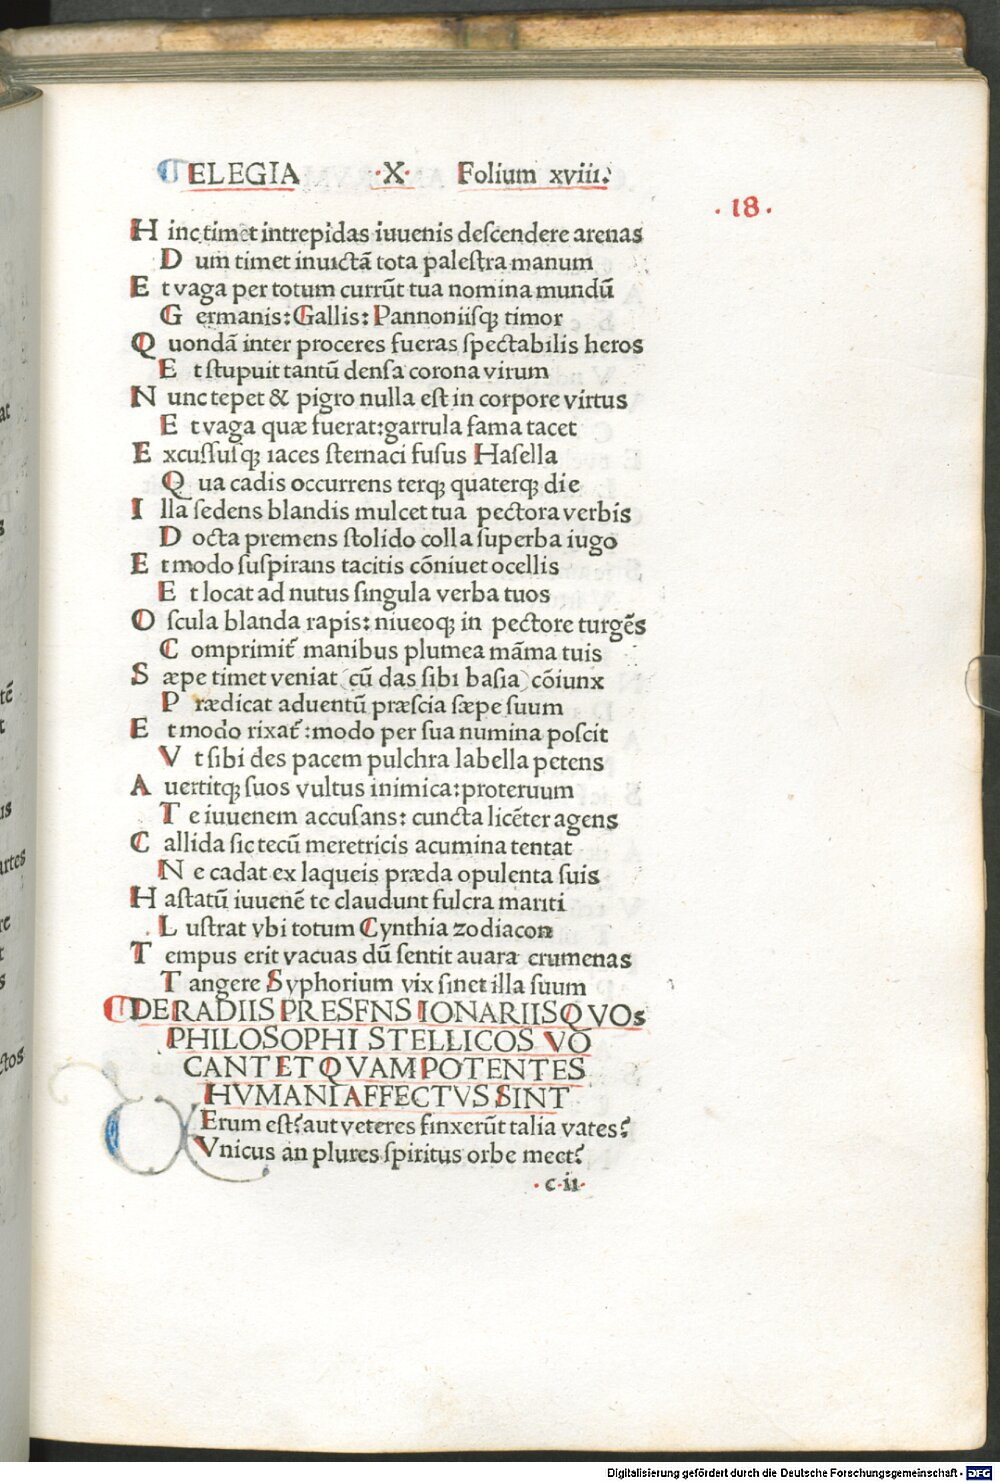 ELEGIA ·X· Folium xviii.
·18·
H inc timet intrepidas iuuenis deſcendere arenas
D um timet inuictā tota paleſtra manum
E t vaga per totum currūt tua nomina mundū
G ermanis: Gallis: Pannoniiſqꝫ timor
Q uondā inter proceres fueras ſpectabilis heros
E t ſtupuit tantū denſa corona virum
N unc tepet & pigro nulla eſt in corpore virtus
E t vaga quæ fuerat: garrula fama tacet
E xcuſſuſqꝫ iaces ſternaci fuſus Haſella
Q ua cadis occurrens terqꝫ quaterqꝫ die
I lla ſedens blandis mulcet tua pectora verbis
D octa premens ſtolido colla ſuperba iugo
E t modo ſuſpirans tacitis cōniuet ocellis
E t locat ad nutus ſingula verba tuos
O ſcula blanda rapis: niueoqꝫ in pectore turgēs
C omprimit᷑ manibus plumea māma tuis
S æpe timet veniat (cū das ſibi baſia) cōiunx
P rædicat aduentū præſcia ſæpe ſuum
E t modo rixat᷑: modo per ſua numina poſcit
V t ſibi des pacem pulchra labella petens
A uertitqꝫ ſuos vultus inimica: proteruum
T e iuuenem accuſans: cuncta licēter agens
C allida ſic tecū meretricis acumina tentat
N e cadat ex laqueis præda opulenta ſuis
H aſtatū iuuenē te claudunt fulcra mariti
L uſtrat vbi totum Cynthia zodiacon
T empus erit vacuas dū ſentit auara crumenas
T angere Syphorium vix ſinet illa ſuum
DE RADIIS PRESENS IONARIIS QVOs
PHILOSOPHI STELLICOS VO
CANT ET QVAM POTENTES
HVMANI AFFECTVS SINT
VErum eſt? aut veteres finxerūt talia vates?
Vnicus an plures ſpiritus orbe meet?
·c·ii·
at
s
tē
t
us
artes
re
t
s
ctos
Digitalisierung gefördert durch die Deutsche Forschungsgemeinschaft - DFG